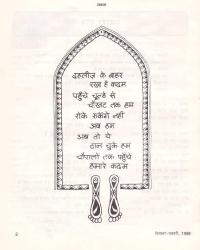 दहलीज़ के बाहर
रखा है कदम
पहुँचे चूल्हे से
चौखट तक हम
रोके रुकेंगे नहीं
अब हम
अब तो ये
ठान चुके हम
चौपालों तक पहुँचे
हमारे कदम